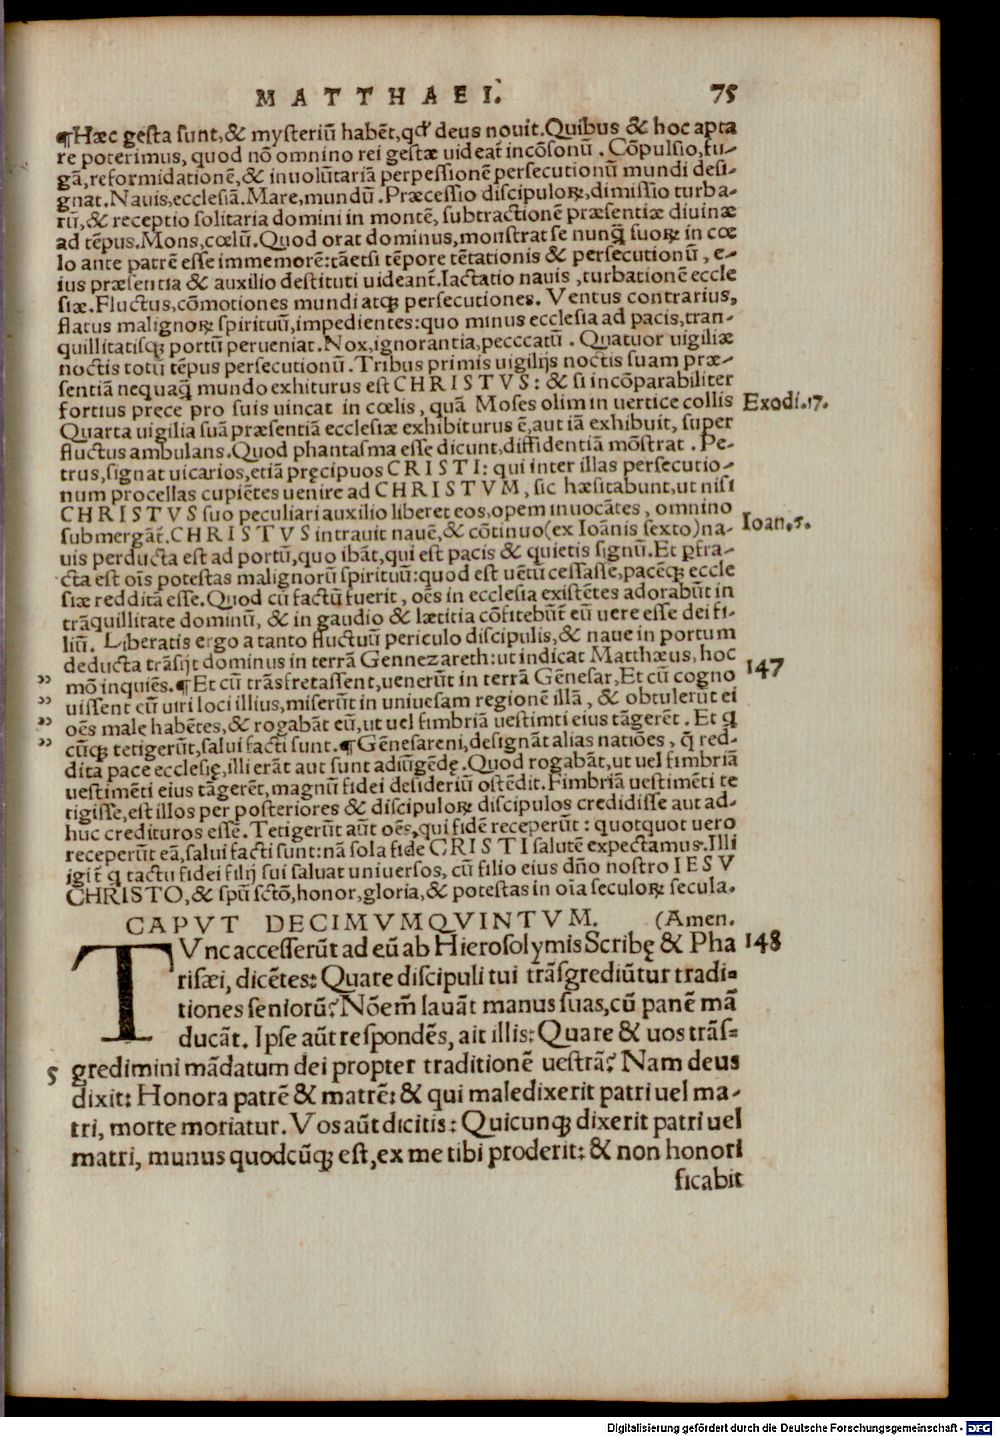 MATTHAEI. 75
¶Hæc gesta sunt,& mysteriū habēt,qđ deus nouit.Quibus & hoc apta
re poterimus, quod nō omnino rei gestæ uideat̄ incōsonū . Cōpulsio,fu-
gā,reformidationē,& inuolūtariā perpessionē persecutionū mundi desi-
gnat.Nauis,ecclesiā.Mare,mundū .Præcessio discipuloꝝ,dimissio turba-
rū,& receptio solitaria domini in montē, subtractionē præsentiæ diuinæ
ad tēpus.Mons,cœlū.Quod orat dominus,monstrat se nunq̄ suoꝝ in cœ
lo ante patrē esse immemorē:tāetsi tēpore tētationis & persecutionū , e-
ius præsentia & auxilio destituti uideant̄.Iactatio nauis ,turbationē eccle
siæ.Fluctus,cōmotiones mundi atqꝫ persecutiones. Ventus contrarius,
flatus malignoꝝ spirituū,impedientes:quo minus ecclesia ad pacis,tran-
quillitatisqꝫ portū perueniat.Nox,ignorantia,pecccatū . Quatuor uigiliæ
noctis totū tēpus persecutionū .Tribus primis uigilijs noctis suam præ-
sentiā nequaq̄ mundo exhiturus est CHRISTVS: & si incōparabiliter
fortius prece pro suis uincat in cœlis, quā Moses olim in uertice collis Exodi.17.
Quarta uigilia suā præsentiā ecclesiæ exhibiturus ē,aut iā exhibuit, super
fluctus ambulans.Quod phantasma esse dicunt,diffidentiā mōstrat . Pe-
trus,signat uicarios,etiā pręcipuos CRISTI: qui inter illas persecutio-
num procellas cupiētes uenire ad CHRISTVM, sic hæsitabunt,ut nisi
CHRISTVS suo peculiari auxilio liberet eos,opem inuocātes, omnino
submergāt̄.CHRISTVS intrauit nauē,& cōtinuo(ex Ioānis sexto)na- Ioan.5.
uis perducta est ad portū,quo ibāt,qui est pacis & quietis signū.Et ꝑfra-
cta est oīs potestas malignorū spirituū:quod est uētū cessasse,pacēqꝫ eccle
siæ redditā esse.Quod cū factū fuerit, oēs in ecclesia existētes adorabūt in
trāquillitate dominū, & in gaudio & lætitia cōfitebūt̄ eū uere esse dei fi-
liū. Liberatis ergo a tanto fluctuū periculo discipulis,& naue in portum
deducta trāsijt dominus in terrā Gennezareth:ut indicat Matthæus, hoc 147
,, mō inquiēs.¶Et cū trāsfretassent,uenerūt in terrā Gēnesar,Et cū cogno
,, uissent eū uiri loci illius,miserūt in uniuesam regionē illā , & obtulerūt ei
,, oēs male habētes,& rogabāt eū,ut uel fimbriā uestimti eius tāgerēt . Et q̄
,, cūqꝫ tetigerūt,salui facti sunt.¶Gēnesareni,designāt alias natiōes , q̄ red-
dita pace ecclesię,illi erāt aut sunt adiūgēdę.Quod rogabāt,ut uel fimbriā
uestimēti eius tāgerēt,magnū fidei desideriū ostēdit.Fimbriā uestimēti te
tigisse,est illos per posteriores & discipuloꝝ discipulos credidisse aut ad-
huc credituros esse.Tetigerūt aūt oēs,qui fidē receperūt: quotquot uero
receperūt eā,salui facti sunt:nā sola fide CRISTI salutē expectamus.Illi
igit̄ q̄ tactu fidei filij sui saluat uniuersos, cū filio eius dño nostro IESV
CHRISTO,& spū sctō,honor,gloria,& potestas in oīa seculoꝝ secula.
CAPVT DECIMVMQVINTVM. (Amen.
TVnc accesserūt ad eū ab Hierosolymis Scribę & Pha 148
risæi, dicētes: Quare discipuli tui trāsgrediūtur tradi-
tiones seniorū? Nōem̄ lauāt manus suas,cū panē mā
ducāt. Ipse aūt respondēs, ait illis: Quare & uos trās-
5 gredimini mādatum dei propter traditionē uestrā? Nam deus
dixit: Honora patrē & matrē: & qui maledixerit patri uel ma-
tri, morte moriatur. Vos aūt dicitis: Quicunqꝫ dixerit patri uel
matri, munus quodcūqꝫ est,ex me tibi proderit: & non honori
ficabit
Digitalisierung gefördert durch die Deutsche Forschungsgemeinschaft - DFG